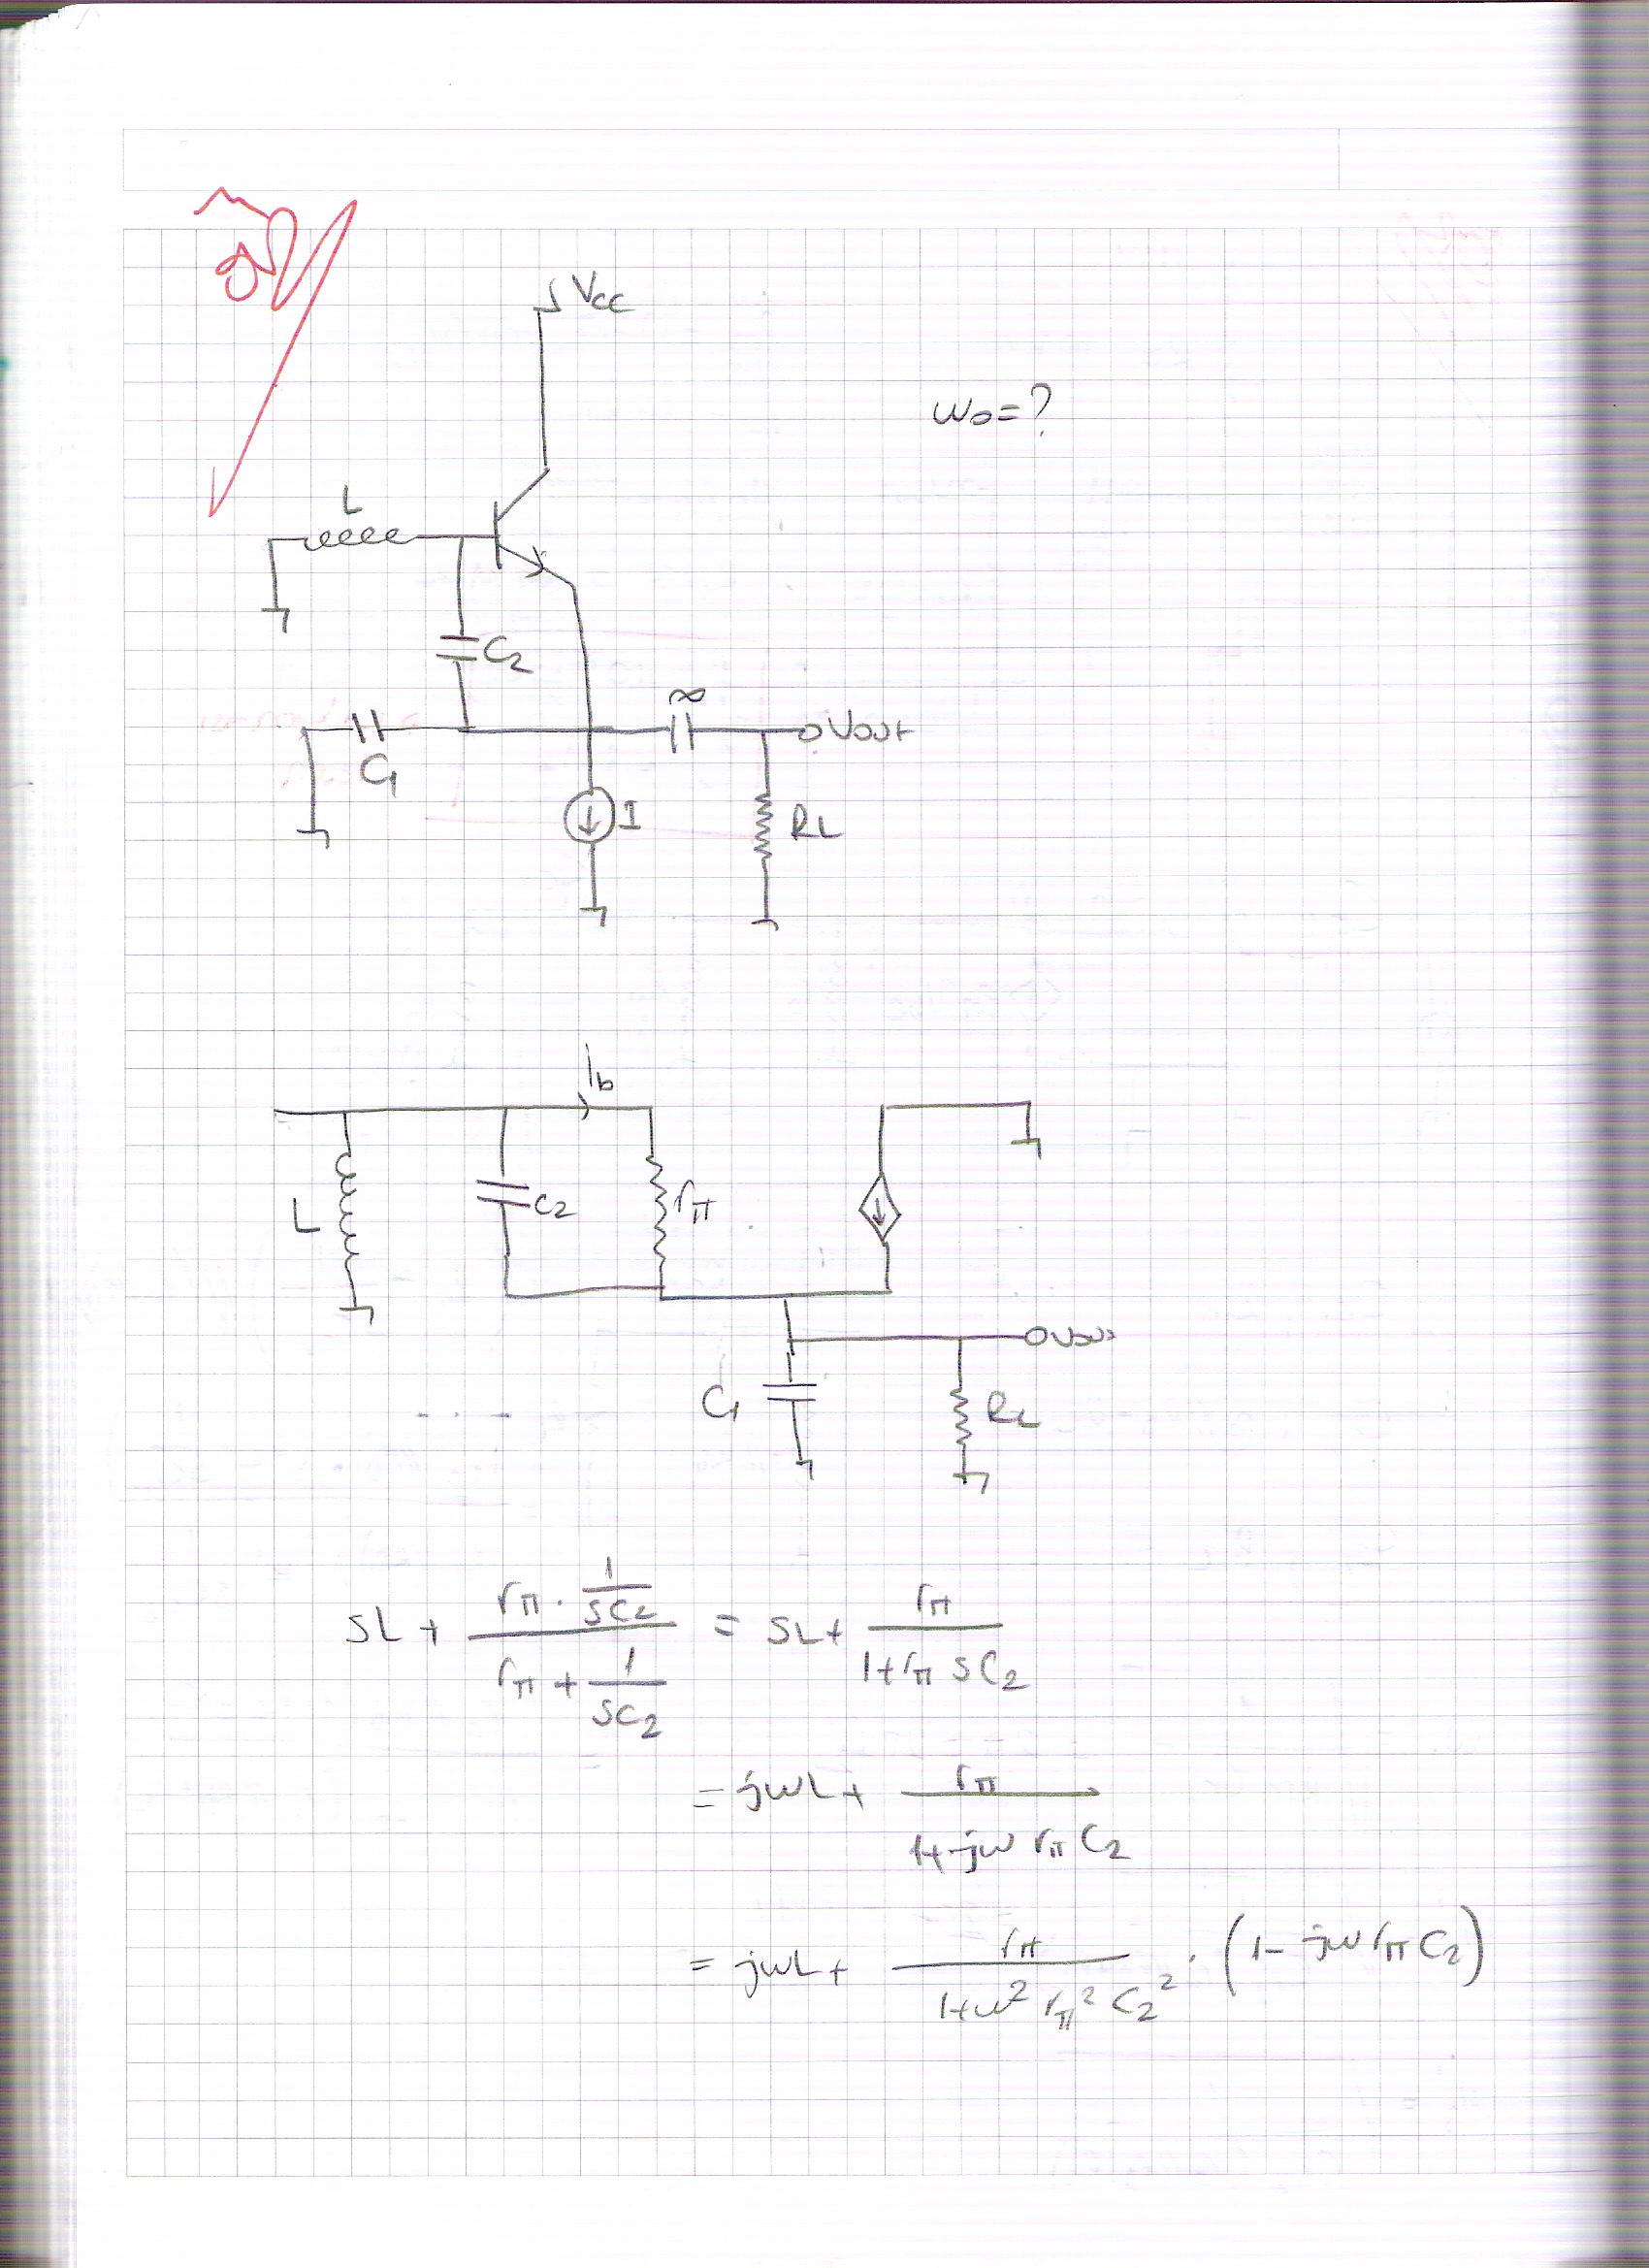 Vcc
ω₀=?
L
C₂
∞
Vout
C₁
I
RL
Ib
L
C₂
rπ
Vout
C₁
RL
SL + (rπ · 1/SC₂) / (rπ + 1/SC₂) = SL + rπ / (1+rπ SC₂)
= jωL + rπ / (1+jω rπ C₂)
= jωL + rπ / (1+ω² rπ² C₂²) · (1 - jω rπ C₂)